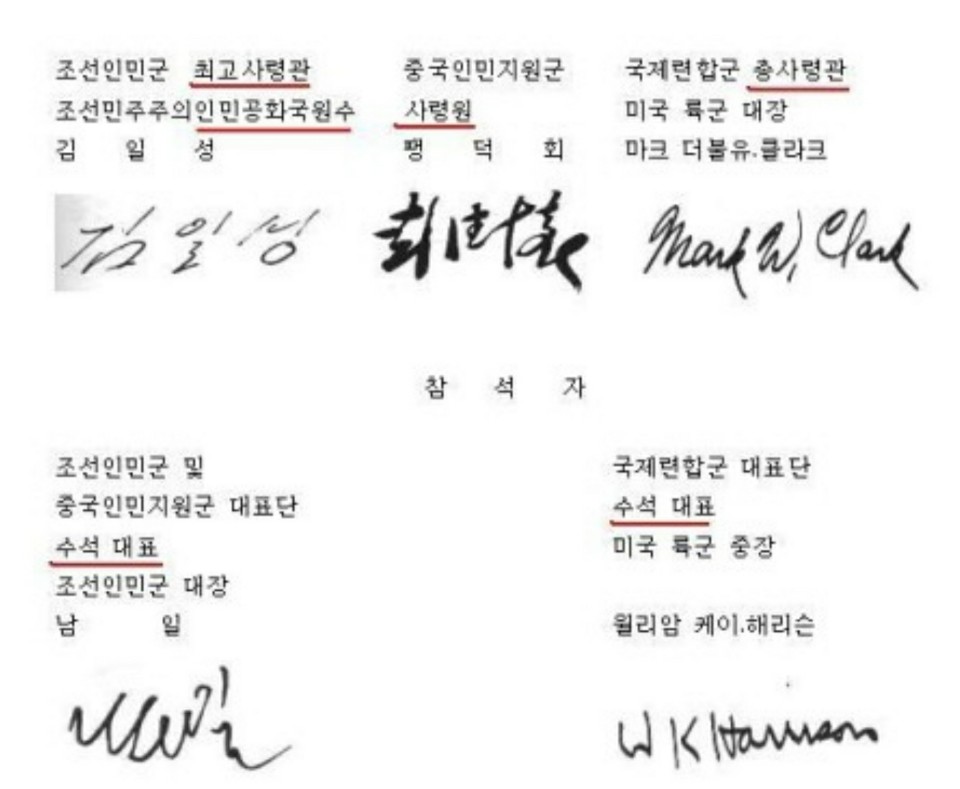 조선인민군 최고사령관
조선민주주의인민공화국원수
김 일 성
중국인민지원군
사령원
팽 덕 회
국제련합군 총사령관
미국 륙군 대장
마크 더블유.클라크
김일성
彭德懷
Mark W. Clark
참 석 자
조선인민군 및
중국인민지원군 대표단
수석 대표
조선인민군 대장
남 일
국제련합군 대표단
수석 대표
미국 륙군 중장
윌리암 케이.해리슨
남일
W K Harrison